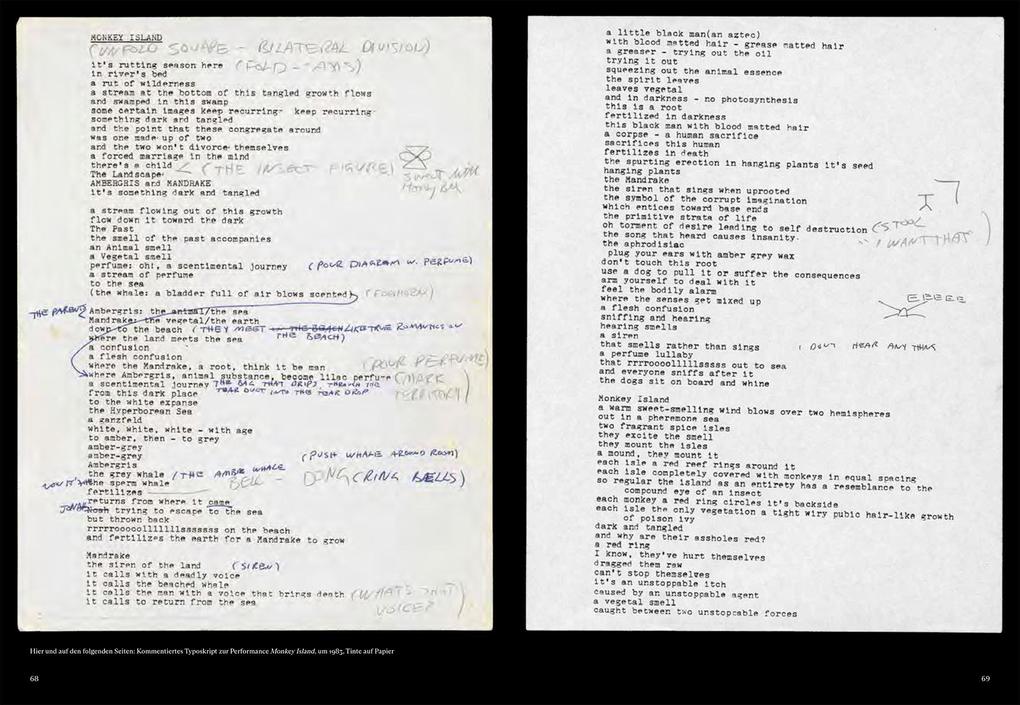 MONKEY ISLAND
(UNFOLD SQUARE - BILATERAL DIVISION)
it's rutting season here (FOLD - AXIS)
in river's bed
a rut of wilderness
a stream at the bottom of this tangled growth flows
and swamped in this swamp
some certain images keep recurring- keep recurring-
something dark and tangled
and the point that these congregate around
was one made up of two
and the two won't divorce themselves
a forced marriage in the mind
there's a child < (THE INSECT FIGURE)
The Landscape
AMBERGRIS and MANDRAKE
it's something dark and tangled
a stream flowing out of this growth
flow down it toward the dark
The Past
the smell of the past accompanies
an Animal smell
a Vegetal smell
perfume: oh!, a scentimental journey (POUR DIAGRAM W. PERFUME)
a stream of perfume
to the sea
(the whale: a bladder full of air blows scented) (FOGHORN)
THE PARENTS
Ambergris: the animal/the sea
Mandrake: the vegetal/the earth
down to the beach (THEY MEET LIKE TRUE ROMANTICS ON THE BEACH)
where the land meets the sea
a confusion
a flesh confusion
where the Mandrake, a root, think it be man (POUR PERFUME)
where Ambergris, animal substance, become lilac perfume (MARK TERRITORY)
a scentimental journey THE BAG THAT DRIPS, THROUGH THE
from this dark place TEAR DUCT INTO THE TEAR DROP
to the white expanse
the Hyperborean Sea
a ganzfeld
white, white, white - with age
to amber, then - to grey
amber-grey
amber-grey (PUSH WHALE AROUND ROOM)
Ambergris
the grey whale / THE AMBER WHALE
the sperm whale BELL - DONG (RING BELLS)
fertilizes
returns from where it came
JONAH Noah trying to escape to the sea
but thrown back
rrrrroooooolllllllsssssss on the beach
and fertilizes the earth for a Mandrake to grow
Mandrake
the siren of the land (SIREN)
it calls with a deadly voice
it calls the beached whale
it calls the man with a voice that brings death (WHAT'S THAT VOICE?)
it calls to return from the sea
a little black man(an aztec)
with blood matted hair - grease matted hair
a greaser - trying out the oil
trying it out
squeezing out the animal essence
the spirit leaves
leaves vegetal
and in darkness - no photosynthesis
this is a root
fertilized in darkness
this black man with blood matted hair
a corpse - a human sacrifice
sacrifices this human
fertilizes in death
the spurting erection in hanging plants it's seed
hanging plants
the Mandrake
the siren that sings when uprooted
the symbol of the corrupt imagination
which entices toward base ends
the primitive strata of life
oh torment of desire leading to self destruction (STOOL
the song that heard causes insanity. "I WANT THAT")
the aphrodisiac
plug your ears with amber grey wax
don't touch this root
use a dog to pull it or suffer the consequences
arm yourself to deal with it
feel the bodily alarm
where the senses get mixed up EEEEE
a flesh confusion
sniffing and hearing
hearing smells
a siren
that smells rather than sings I DON'T HEAR ANY THING
a perfume lullaby
that rrrrooooolllllsssss out to sea
and everyone sniffs after it
the dogs sit on board and whine
Monkey Island
a warm sweet-smelling wind blows over two hemispheres
out in a pheremone sea
two fragrant spice isles
they excite the smell
they mount the isles
a mound, they mount it
each isle a red reef rings around it
each isle completely covered with monkeys in equal spacing
so regular the island as an entirety has a resemblance to the
compound eye of an insect
each monkey a red ring circles it's backside
each isle the only vegetation a tight wiry pubic hair-like growth
of poison ivy
dark and tangled
and why are their assholes red?
a red ring
I know, they've hurt themselves
dragged them raw
can't stop themselves
it's an unstoppable itch
caused by an unstoppable agent
a vegetal smell
caught between two unstopcable forces
Hier und auf den folgenden Seiten: Kommentiertes Typoskript zur Performance Monkey Island, um 1983, Tinte auf Papier
68
69